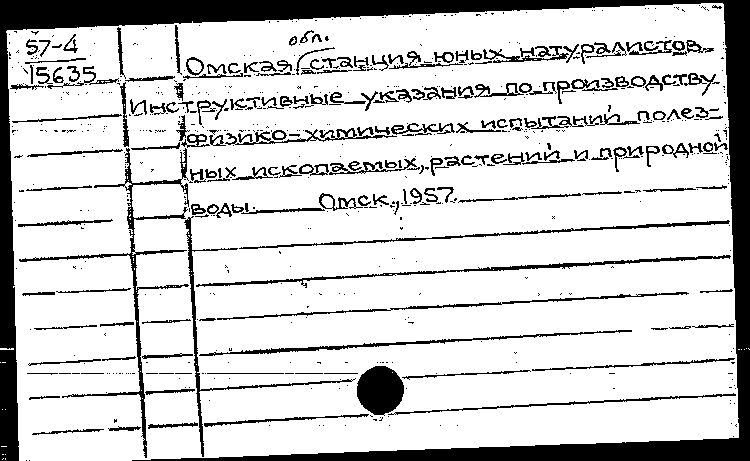 57-4
15635
обл.
Омская станция юных натуралистов.
Инструктивные указания по производству
физико-химических испытаний полез-
ных ископаемых, растений и природной
воды. Омск, 1957.